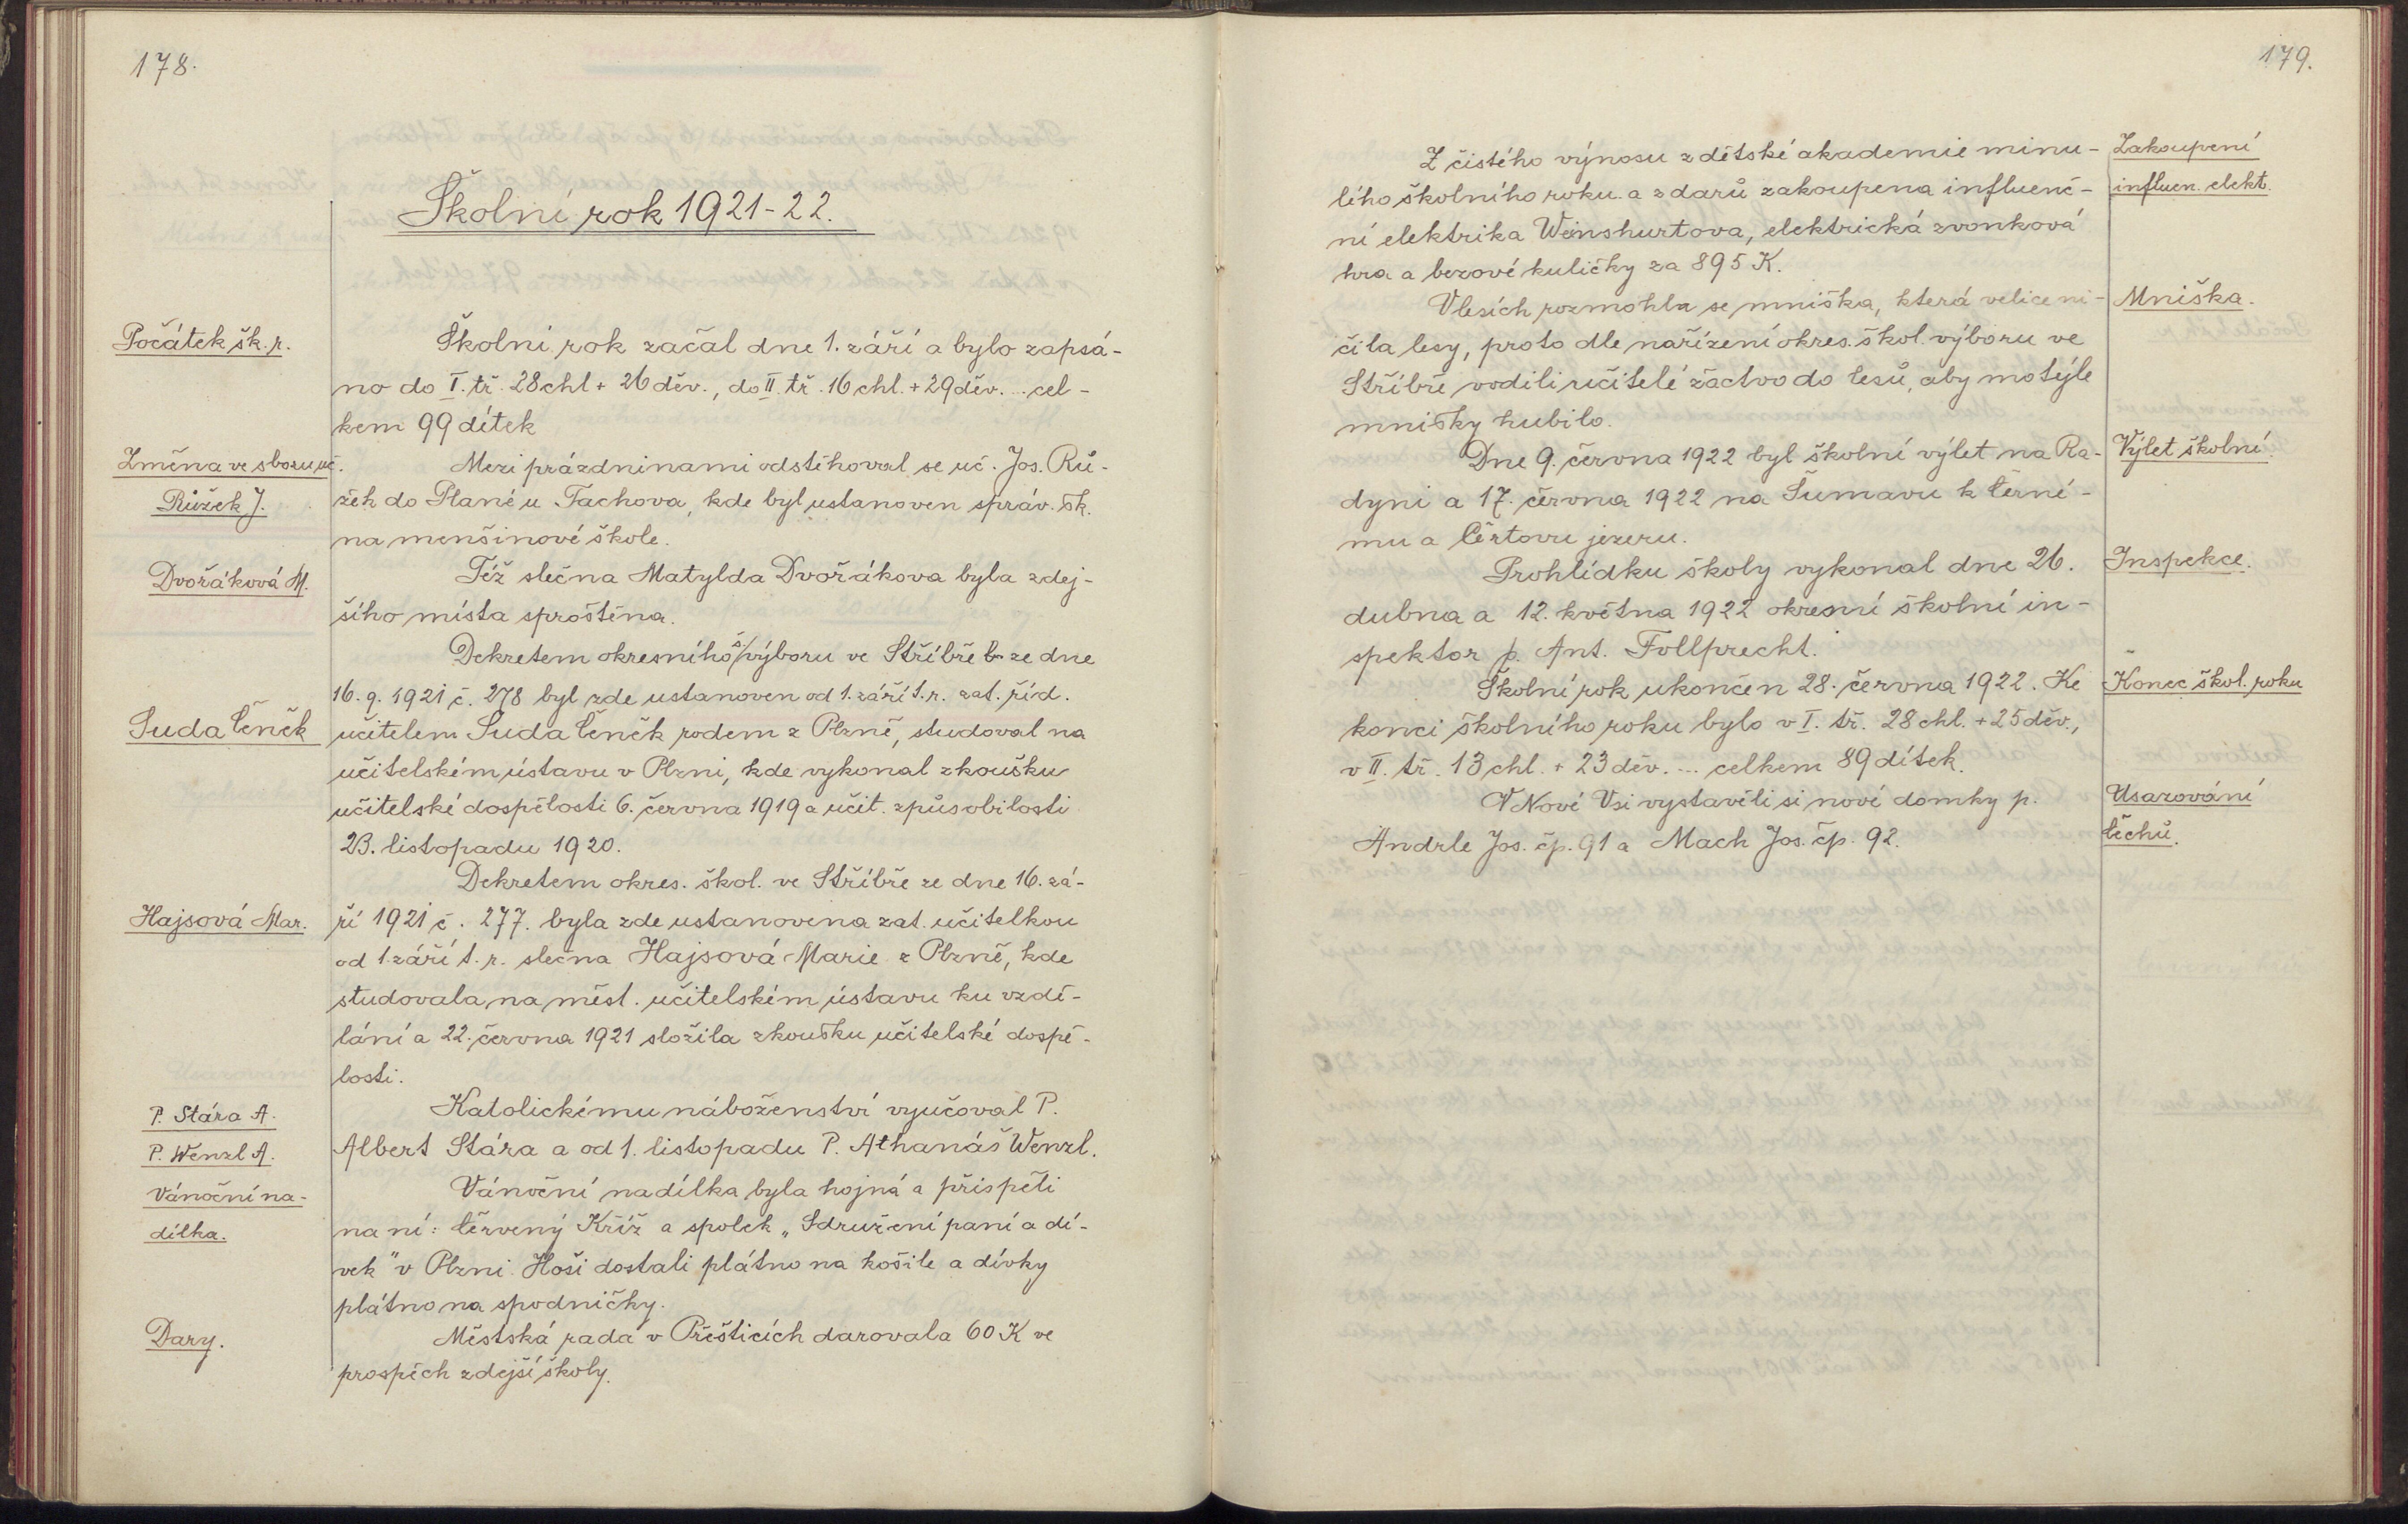 178.
Školní rok 1921-22.
Počátek šk. r.
Školní rok začal dne 1. září a bylo zapsá-
no do I. tř. 28 chl + 26 děv., do II. tř. 16 chl. + 29 děv. ... cel-
kem 99 dítek
Změna ve sboru uč.
Mezi prázdninami odstěhoval se uč. Jos. Rů-
Růžek J.
žek do Plané u Tachova, kde byl ustanoven správ. šk.
na menšinové škole.
Dvořáková M.
Též slečna Matylda Dvořákova byla zdej-
šího místa sproštěna.
Dekretem okresního š. výboru ve Stříbře ze dne
16. 9. 1921 č. 278 byl zde ustanoven od 1. září t. r. zat. říd.
Suda Čeněk
učitelem Suda Čeněk rodem z Plzně, studoval na
učitelském ústavu v Plzni, kde vykonal zkoušku
učitelské dospělosti 6. června 1919 a učit. způsobilosti
23. listopadu 1920.
Dekretem okres. škol. ve Stříbře ze dne 16. zá-
Hajsová Mar.
ří 1921 č. 277. byla zde ustanovena zat. učitelkou
od 1. září t. r. slečna Hajsová Marie z Plzně, kde
studovala na měst. učitelském ústavu ku vzdě-
lání a 22. června 1921 složila zkoušku učitelské dospě-
losti.
P. Stára A.
Katolickému náboženství vyučoval P.
P. Wenzl A.
Albert Stára a od 1. listopadu P. Athanáš Wenzl.
Vánoční na-
Vánoční nadílka byla hojná a přispěli
dílka.
na ní: Červený Kříž a spolek „Sdružení paní a dí-
vek" v Plzni. Hoši dostali plátno na košile a dívky
plátno na spodničky.
Dary.
Městská rada v Přešticích darovala 60 K ve
prospěch zdejší školy.
179.
Z čistého výnosu z dětské akademie minu-
Zakoupení
lého školního roku a z darů zakoupena influenč-
influen. elekt.
ní elektrika Weinshurtova, elektrická zvonková
hra a bezové kuličky za 895 K.
V lesích rozmohla se mniška, která velice ni-
Mniška.
čila lesy, proto dle nařízení okres. škol. výboru ve
Stříbře vodili učitelé žactvo do lesů, aby motýle
mnišky hubilo.
Dne 9. června 1922 byl školní výlet na Ra-
Výlet školní.
dyni a 17. června 1922 na Šumavu k Černé-
mu a Čertovu jezeru.
Prohlídku školy vykonal dne 26.
Inspekce.
dubna a 12. května 1922 okresní školní in-
spektor p. Ant. Follprecht.
Školní rok ukončen 28. června 1922. Ke
Konec škol. roku
konci školního roku bylo v I. tř. 28 chl. + 25 děv.,
v II. tř. 13 chl. + 23 děv. ... celkem 89 dítek.
V Nové Vsi vystavěli si nové domky p.
Usazování
Andrle Jos. čp. 91 a Mach Jos. čp. 92.
Čechů.